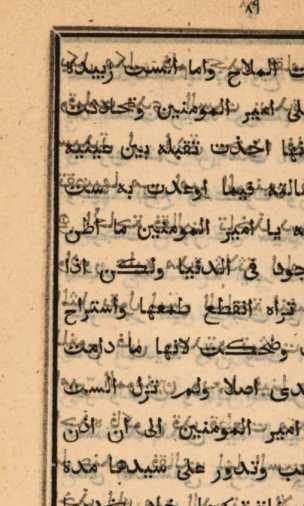 ٨٩
الملاح واما الست زبيده
امير المومنين وتحادثت
اخذت تقبله بين عينيه
فيما اوعدت به ست
يا امير المومنين ما اظن
فى الدنيا ولكن اذا
تراه انقطع طمعها واستراح
وضحكت لانها ما دامت
اصلا ولم تزل الست
امير المومنين الى ان اذن
وتدور على سيدها مدة